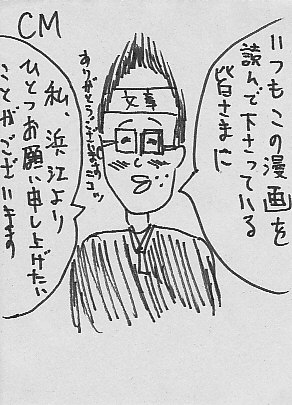 CM
いつもこの漫画を
読んで下さっている
皆さまに
ありがとうございます
私、浜江より
ひとつお願い申し上げたい
ことがございます